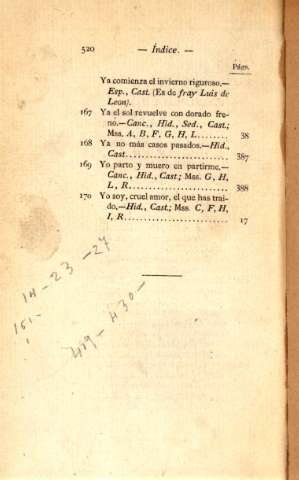 520 — Índice. —
Págs.
Ya comienza el invierno riguroso.—
Esp., Cast. (Es de fray Luis de
Leon).
167 Ya el sol revuelve con dorado fre-
no.—Canc., Hid., Sed., Cast.;
Mss. A, B, F, G, H, L....... 38
168 Ya no más casos pasados.—Hid.,
Cast.................... 387
169 Yo parto y muero en partirme.—
Canc., Hid., Cast.; Mss. G, H,
L, R.................... 388
170 Yo soy, cruel amor, el que has trai-
do.—Hid., Cast.; Mss. C, F, H,
I, R.................... 17
14 - 23 - 27
151-
429- 430-